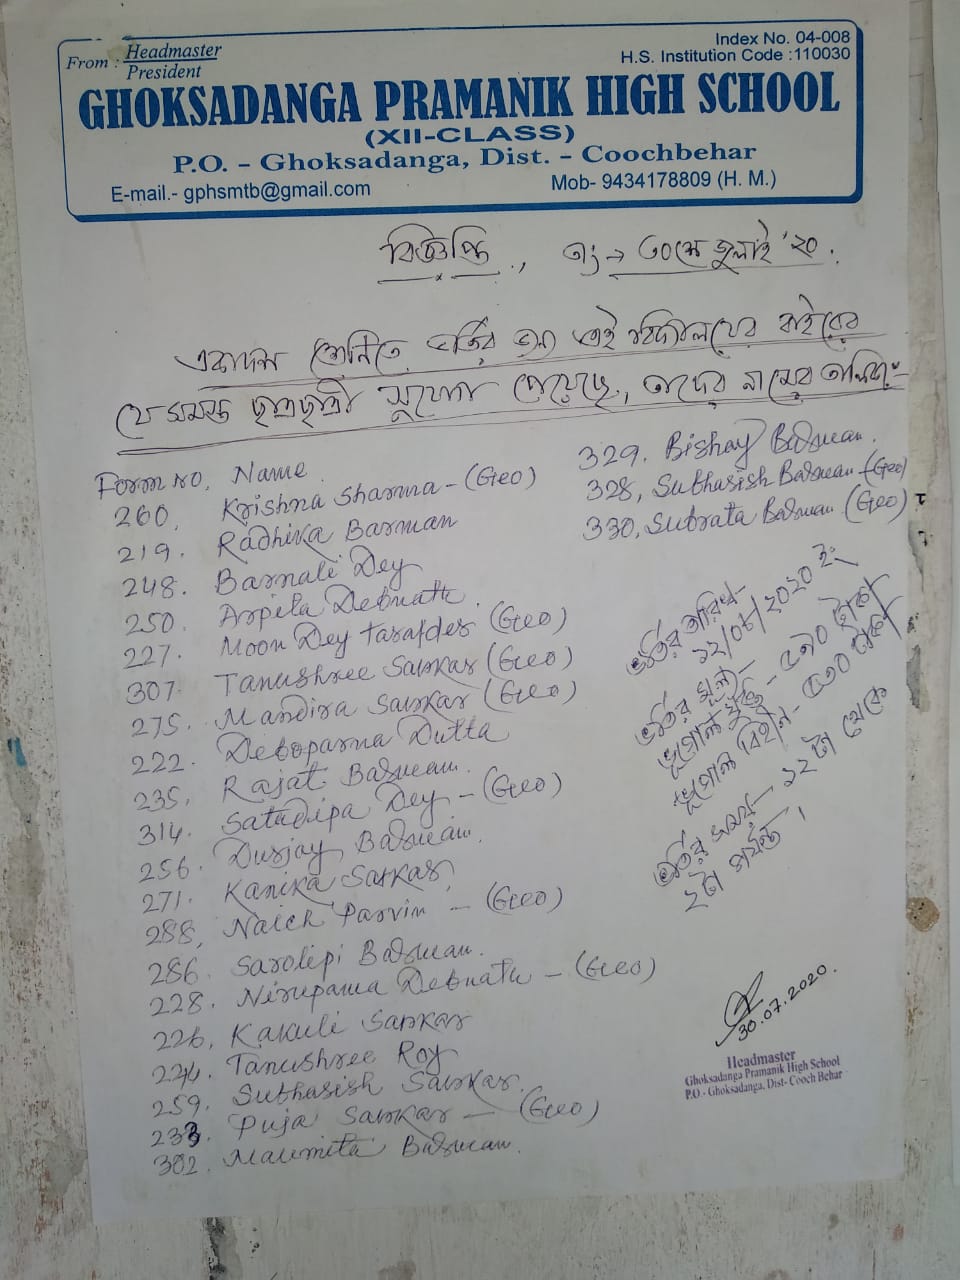 From : Headmaster
President
Index No. 04-008
H.S. Institution Code :110030
GHOKSADANGA PRAMANIK HIGH SCHOOL
(XII-CLASS)
P.O. - Ghoksadanga, Dist. - Coochbehar
E-mail.- gphsmtb@gmail.com
Mob- 9434178809 (H. M.)
বিজ্ঞপ্তি, তাং → ৩০শে জুলাই '২০.
একাদশ শ্রেণিতে ভর্তির জন্য এই বিদ্যালয়ের বাইরের
যে সমস্ত ছাত্রছাত্রী সুযোগ পেয়েছে, তাদের নামের তালিকা:-
Form No. Name
260. Krishna Sharma - (Geo)
219. Radhika Barman
248. Barnali Dey
250. Arpita Debnath.
227. Moon Dey Tarafder (Geo)
307. Tanushree Sarkar (Geo)
275. Mandira Sarkar (Geo)
222. Deboparna Dutta
235. Rajat Barman.
314. Satadipa Dey - (Geo)
256. Durjay Barman.
271. Kanika Sarkar
288. Parvin - (Geo)
286. Sarolipi Barman.
228. Nirupama Debnath - (Geo)
226. Kakuli Sarkar
224. Tanushree Roy
259. Subhasish Sarkar.
233. Puja Sarkar - (Geo)
302. Maumita Barman.
329. Barman.
328, Subhasish Barman - (Geo)
330, Subrata Barman (Geo)
ভর্তির তারিখ -
১২/০৮/২০২০ ইং
ভর্তির মূল্য -
ভূগোল যুক্তি - টাকা
ভূগোল বিহীন - টাকা
ভর্তির সময় - ১২ টা থেকে
২টা পর্যন্ত।
30.07.2020.
Headmaster
Ghoksadanga Pramanik High School
P.O.- Ghoksadanga, Dist- Cooch Behar